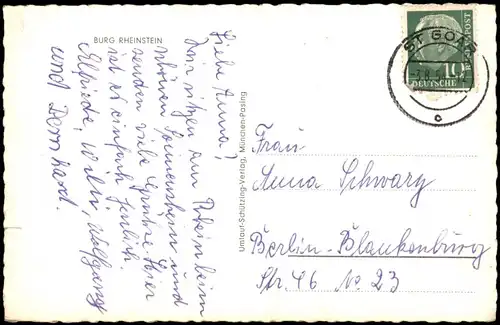 BURG RHEINSTEIN
Liebe Anna!
Wir sitzen am Rhein beim
schönen Sonnenschein und
senden viele Grüße. Hier
ist es einfach herrlich.
Elfriede, Willi, Wolfgang
und Bernhard.
Umlauf-Schützing-Verlag, München-Pasing
ST GOAR
10
DEUTSCHE BUNDESPOST
c
Frau
Anna Schwarz
Berlin-Blankenburg
Str. 46 No 23